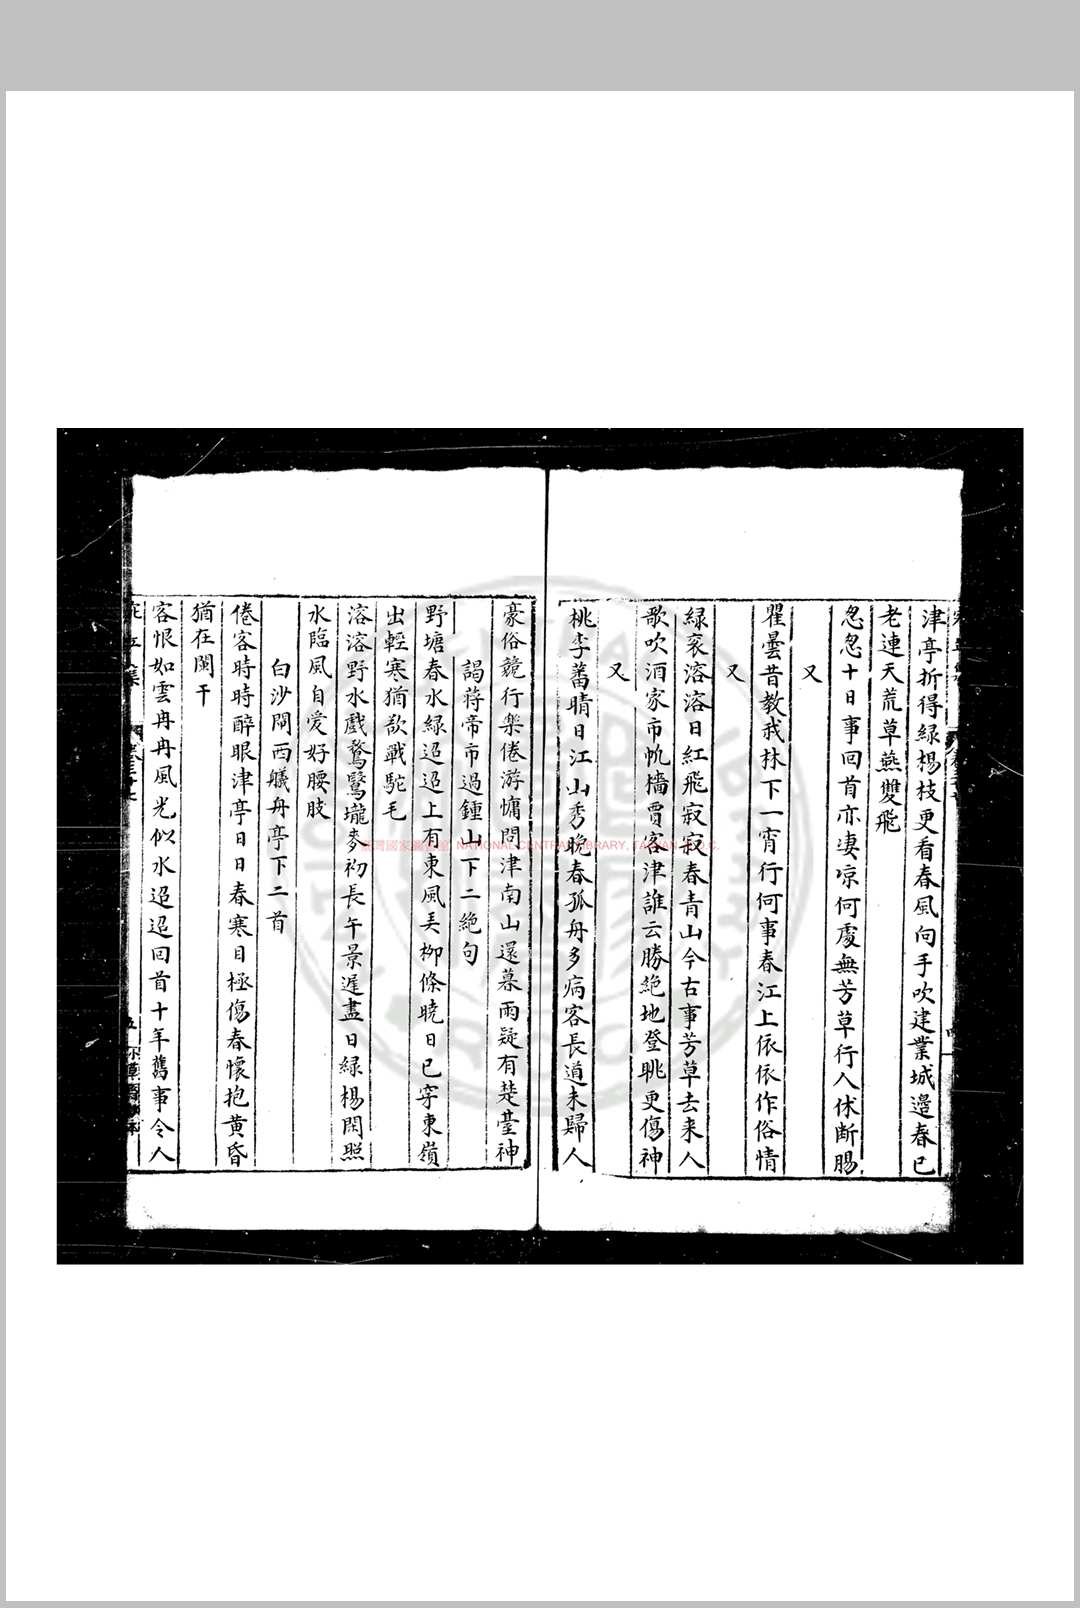 津亭折得緑楊枝更看春風向手吹建業城邉春已
老連天荒草燕雙飛
忽忽十日事回首亦凄凉何處無芳草行人休斷腸
又
瞿曇昔教我林下一宵行何事春江上依依作俗情
又
緑衮溶溶日紅飛寂寂春青山今古事芳草去来人
歌吹酒家市帆檣賈客津誰云勝絶地登眺更傷神
又
桃李蕃晴日江山秀晚春孤舟多病客長道未歸人
豪俗競行樂倦游慵問津南山還暮雨疑有楚臺神
謁蒋帝市過鍾山下二絶句
野塘春水緑迢迢上有東風美柳條曉日已穿東嶺
出輕寒猶欲戰駝毛
溶溶野水戲鶩鷖壠麥初長午景遲盡日緑楊閑照
水臨風自愛好腰肢
白沙閘西艤舟亭下二首
倦客時時醉眼津亭日日春寒目極傷春懷抱黄昏
猶在闌干
客恨如雲冉冉風光似水迢迢回首十年舊事令人
臺灣國家圖書館 NATIONAL CENTRAL LIBRARY, TAIWAN, R.O.C.